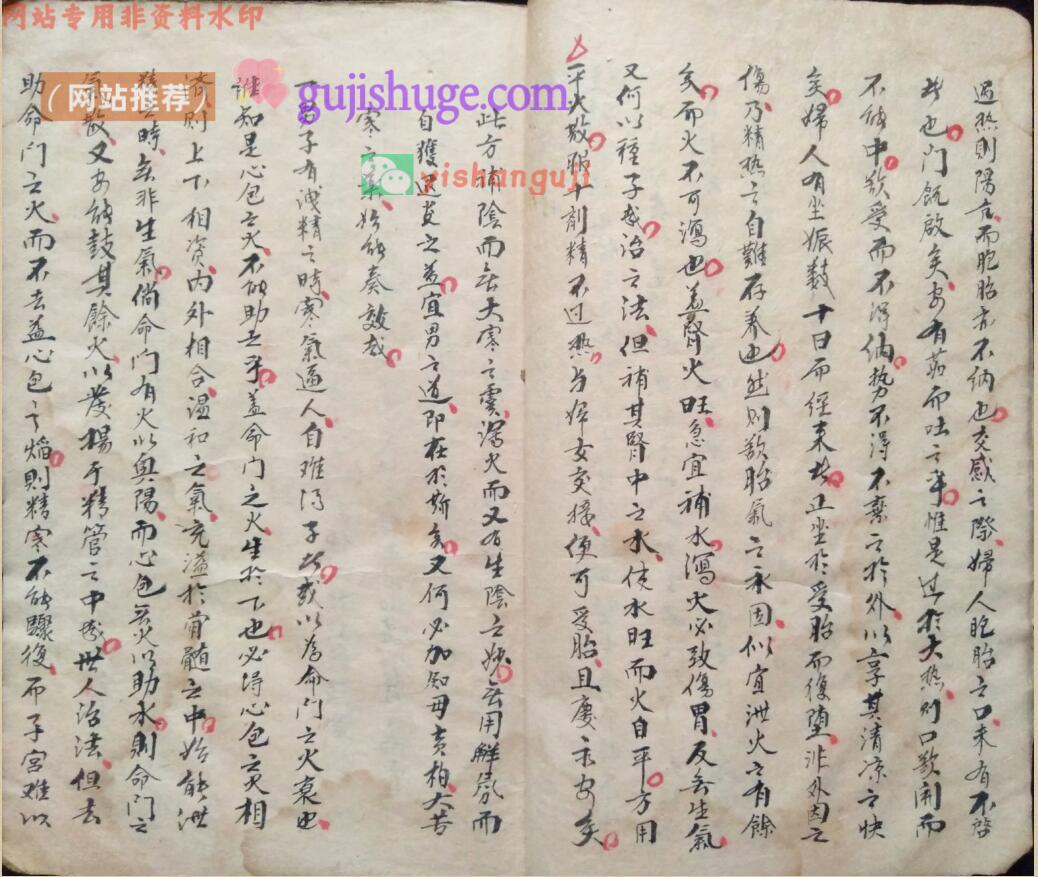 网站专用非资料水印
（网站推荐）
gujishuge.com
yishanguji
過熱則陽亢而胞胎亦不納也交感之際婦人胞胎之口未有不啓
者也門既啟矣安有茹而吐之乎惟是过於大热則口欲開而
不能中欲受而不得納势不得不棄之於外以享其清凉之快
矣婦人有坐娠数十日而經来者正坐於受胎而復堕非外因之
傷乃精热之自難存养也然則欲胎氣之永固似宜泄火之有餘
矣而火不可瀉也盖腎火旺急宜補水瀉火必致傷胃反無生氣
又何以種子哉治之法但補其腎中之水使水旺而火自平方用
平火散服十剤精不过热与婦女交接便可受胎且慶永安矣
此方補陰而無大寒之虞瀉火而又有生陰之妙無用解氛而
自獲退炎之益宜男之道即在於斯矣又何必加知母黄柏大苦
寒之藥始能奏效哉
男子有泄精之時寒氣逼人自难得子者或以為命門之火衰也
誰知是心包之火不能助之乎盖命門之火生於下也必得心包之火相
濟則上下相資内外相合温和之氣充溢於骨髓之中始能泄
精之時無非生氣倘命門有火以興陽而心包無火以助水則命門之
氣散又安能鼓其餘火以發揚于精管之中哉世人治法但去
助命門之火而不去益心包之焰則精寒不能驟復而子宮难以